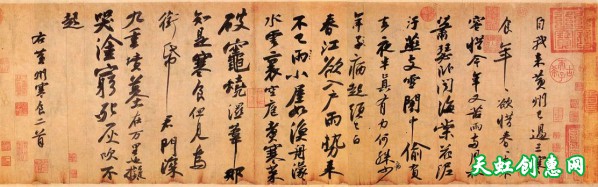 自我來黃州已過三寒
食年〻欲惜春〻去不
容惜今年又苦雨兩月秋
蕭瑟臥聞海棠花泥
汙燕支雪闇中偷負
去夜半真有力何殊少
年子病起頭已白
春江欲入戶雨勢來
不已雨小屋如漁舟濛〻
水雲裏空庖煮寒菜
破竈燒濕葦那
知是寒食但見烏
銜帋君門深
九重墳墓在万里也擬
哭塗窮死灰吹不
起
右黃州寒食二首
天虹创意网